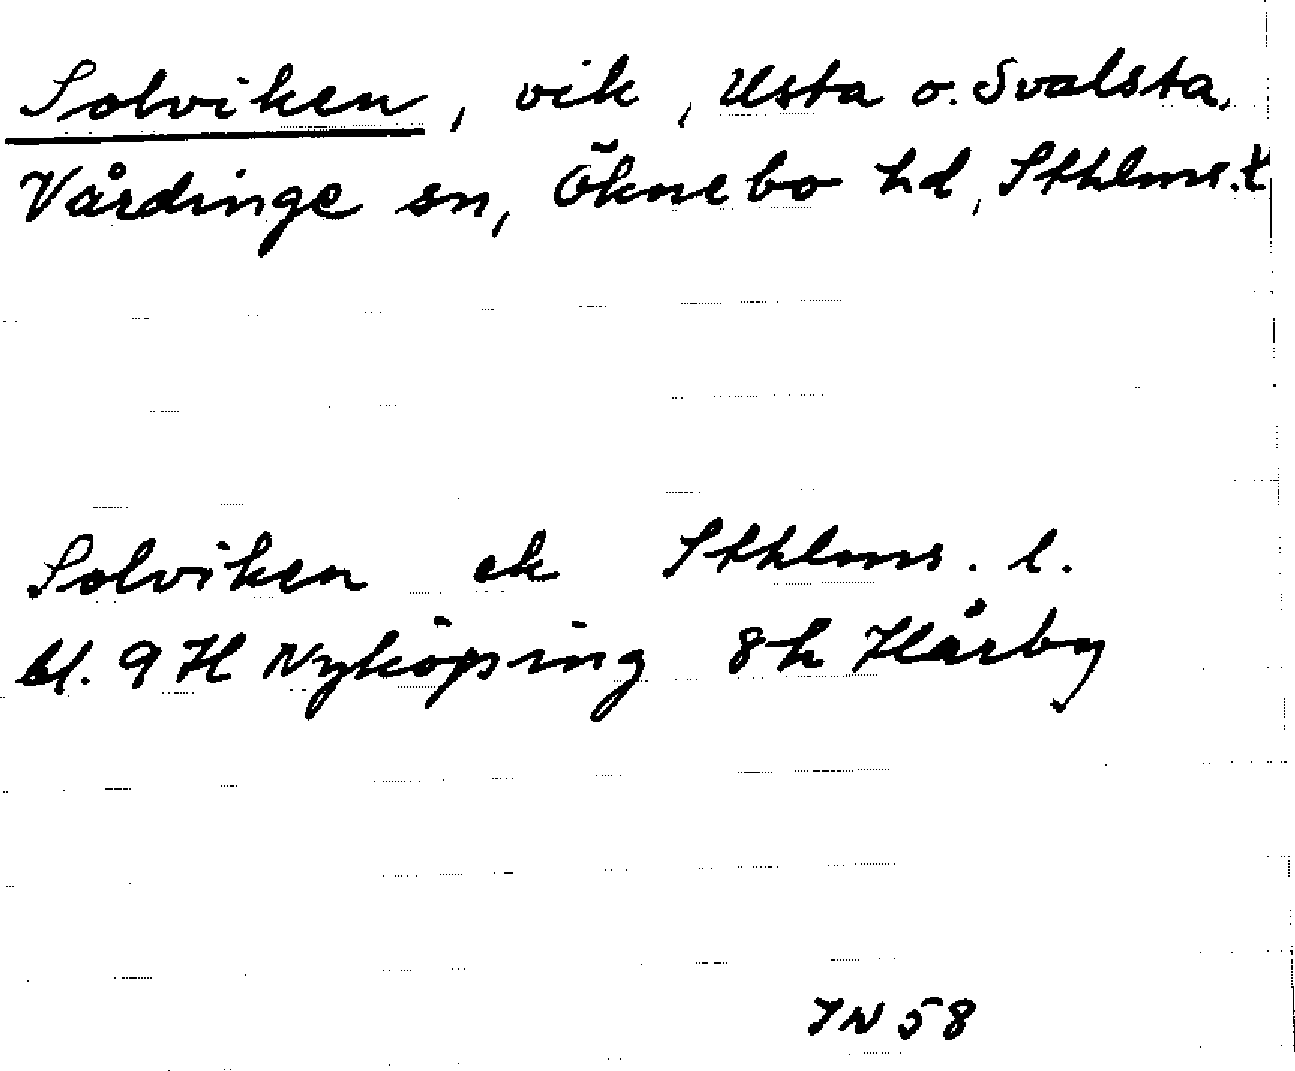 Solviken, vik, Usta o. Svalsta,
Vårdinge sn, Öknebo hd, Sthlms. l.
Solviken ek Sthlms. l.
bl. 9 H Nyköping 8h Hårby
IN 58